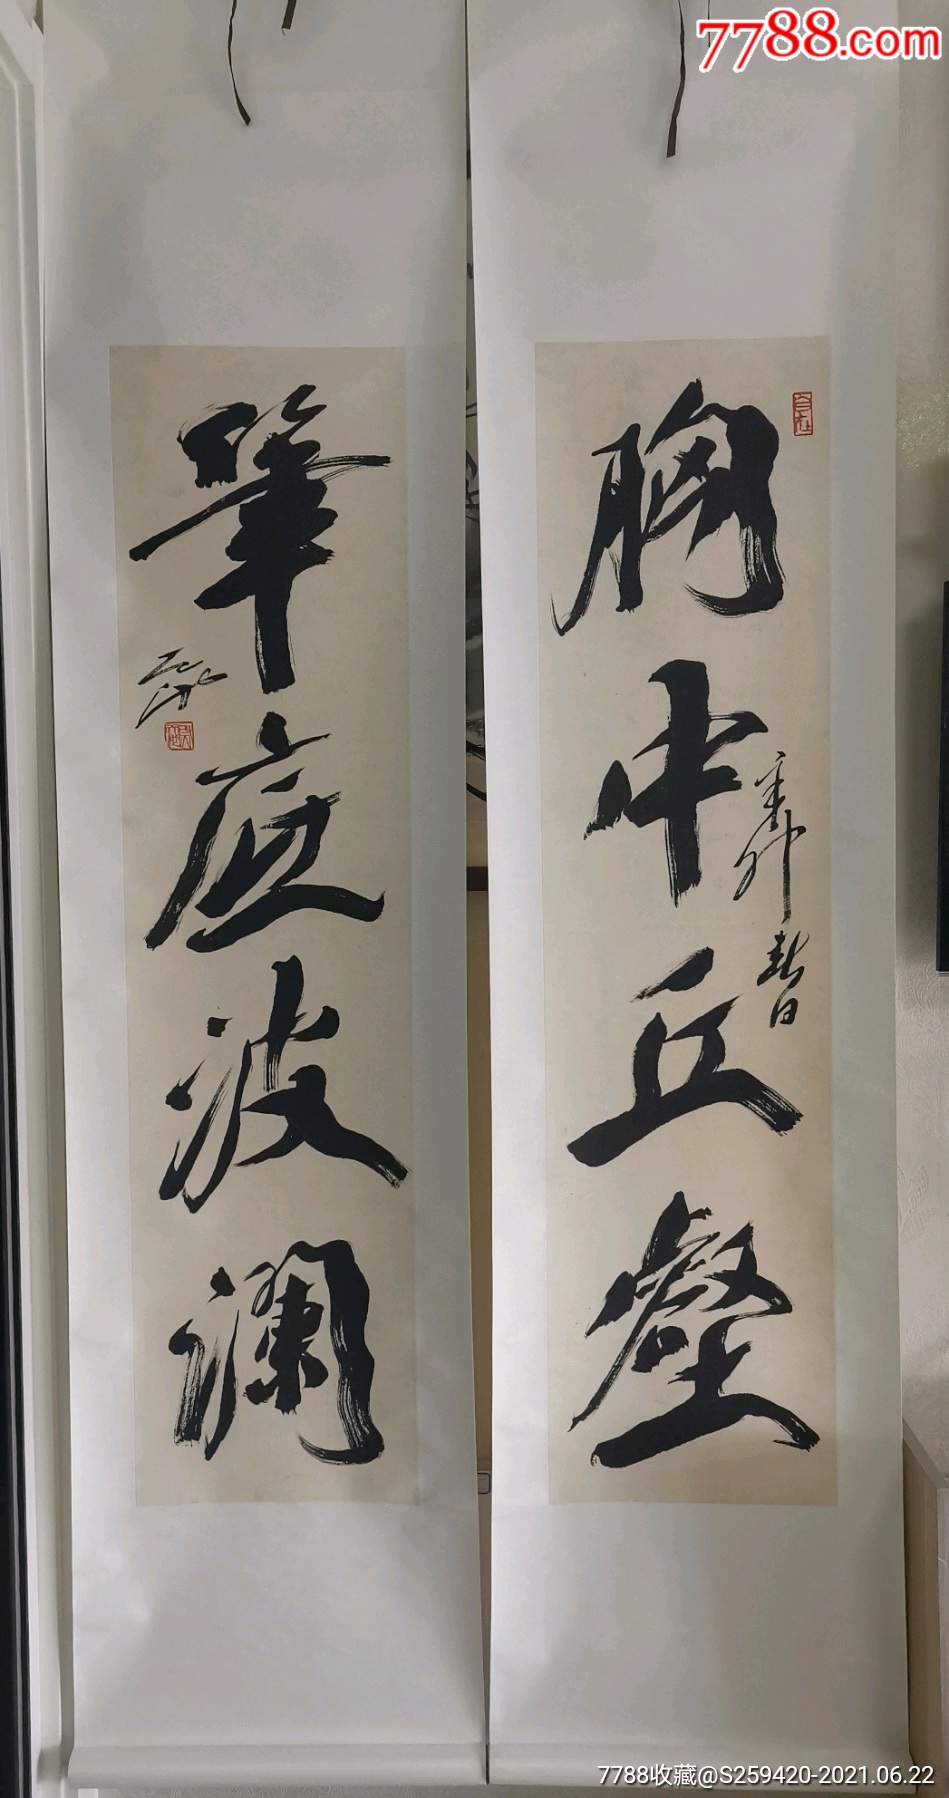 7788.com
胸中丘壑
辛卯春日
筆底波瀾
7788收藏@S259420-2021.06.22